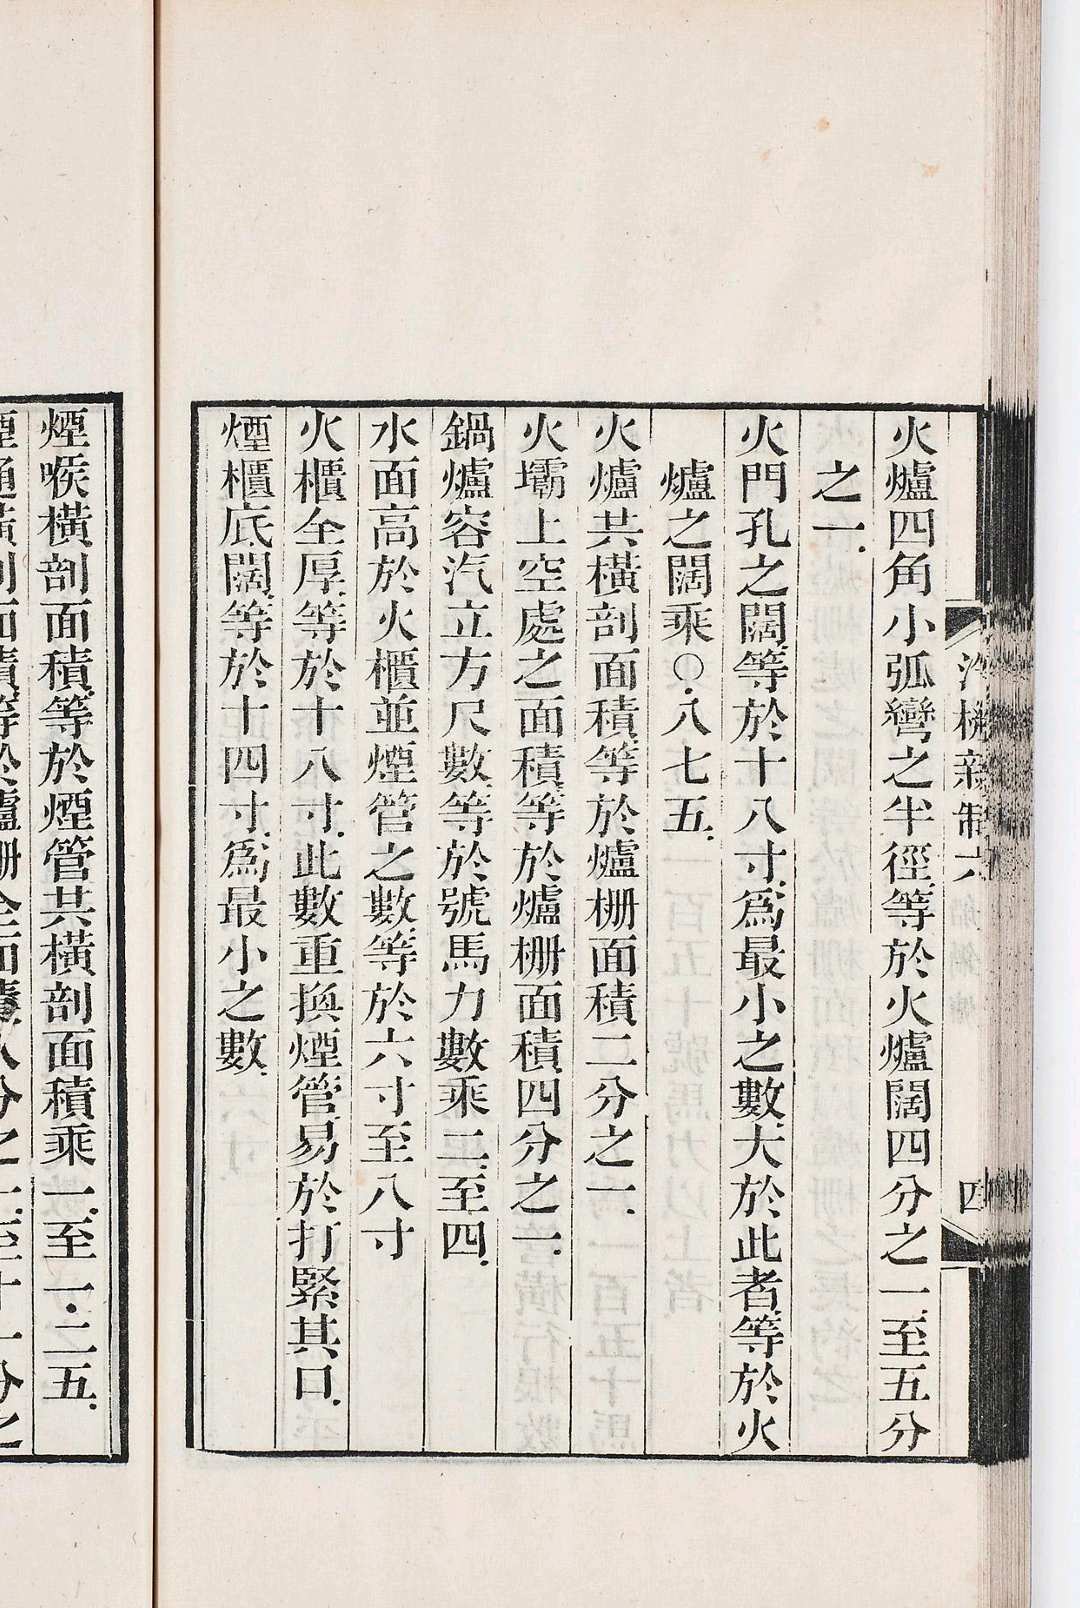 汽機新制六
四
火爐四角小弧彎之半徑等於火爐闊四分之一至五分
之一.
火門孔之闊等於十八寸爲最小之數大於此者等於火
爐之闊乘〇.八七五.
火爐共橫剖面積等於爐柵面積二分之一.
火壩上空處之面積等於爐柵面積四分之一.
鍋爐容汽立方尺數等於號馬力數乘二至四.
水面高於火櫃並煙管之數等於六寸至八寸
火櫃全厚等於十八寸.此數重換煙管易於打緊其口.
煙櫃底闊等於十四寸爲最小之數.
煙喉橫剖面積等於煙管共橫剖面積乘一.至一.二五.